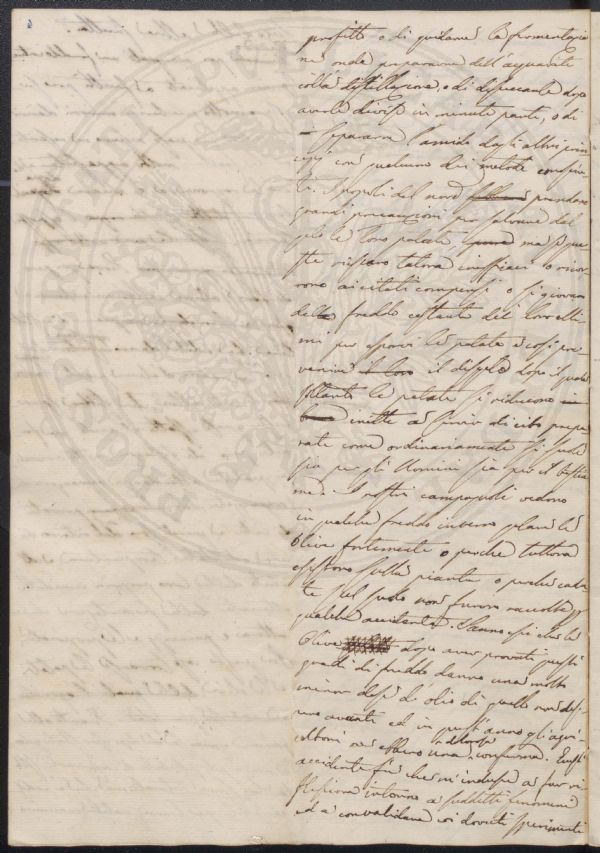 profitto o di guidare la fermentazio
ne onde prepararne dell'acquavite
colla distillazione, o di disseccarle dopo
averle divise in minute parti, o di
separarne l'amido dagli altri prin
cipj con qualcuno dei metodi conosciu
ti. I popoli del nord prendono
grandi precauzioni per salvare dal
gelo le loro patate, ma se que
ste riescono talora inefficaci o ricor
rono ai citati compensi o si giovano
del freddo costante del loro cli
ma per esporvi le patate e così pre
venire il loro il disgelo dopo il quale
soltanto le patate si riducono in
inette a servir di cibo prepa
rate come ordinariamente si suole
sia per gli Uomini sia per il bestia
me. I nostri campagnuoli vedono
in qualche freddo inverno gelare le
Olive fortemente o perché tuttora
esistono sulla pianta o perché cadu
te sul suolo non furono raccolte per
qualche accidente. Sanno essi che le
Olive dopo aver provati questi
gradi di freddo danno una molto
minor dose di olio di quello non des
sero avanti ed in quest'anno gli agri
coltori ne ebbero una conferma. Quest'
accidente fu che m'indusse a far ri
flessione intorno a suddetti fenomeni
ed a convalidare coi dovuti sperimenti